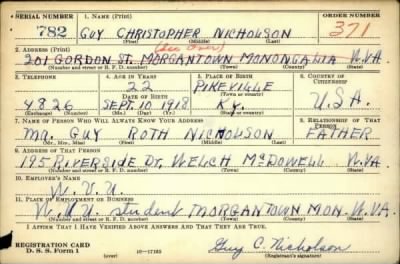 SERIAL NUMBER 1. NAME (Print) ORDER NUMBER
782 GUY CHRISTOPHER NICHOLSON 371
(First) (Middle) (Last)
2. ADDRESS (Print) (See Over)
201 GORDON ST. MORGANTOWN MONONGALIA W.VA.
(Number and street or R. F. D. number) (Town) (County) (State)
3. TELEPHONE 4. AGE IN YEARS 5. PLACE OF BIRTH 6. COUNTRY OF CITIZENSHIP
22 PIKEVILLE
DATE OF BIRTH (Town or county)
4826 SEPT. 10 1918 KY. U.S.A.
(Exchange) (Number) (Mo.) (Day) (Yr.) (State or country)
7. NAME OF PERSON WHO WILL ALWAYS KNOW YOUR ADDRESS 8. RELATIONSHIP OF THAT PERSON
MR. GUY ROTH NICHOLSON FATHER
(Mr., Mrs., Miss) (First) (Middle) (Last)
9. ADDRESS OF THAT PERSON
195 RIVERSIDE DR. WELCH McDOWELL W.VA.
(Number and street or R. F. D. number) (Town) (County) (State)
10. EMPLOYER'S NAME
W.V.U.
11. PLACE OF EMPLOYMENT OR BUSINESS
W.V.U. student MORGANTOWN MON. W.VA.
(Number and street or R. F. D. number) (Town) (County) (State)
I AFFIRM THAT I HAVE VERIFIED ABOVE ANSWERS AND THAT THEY ARE TRUE.
REGISTRATION CARD
D. S. S. Form 1 (over) 16-17105 Guy C. Nicholson
(Registrant's signature)